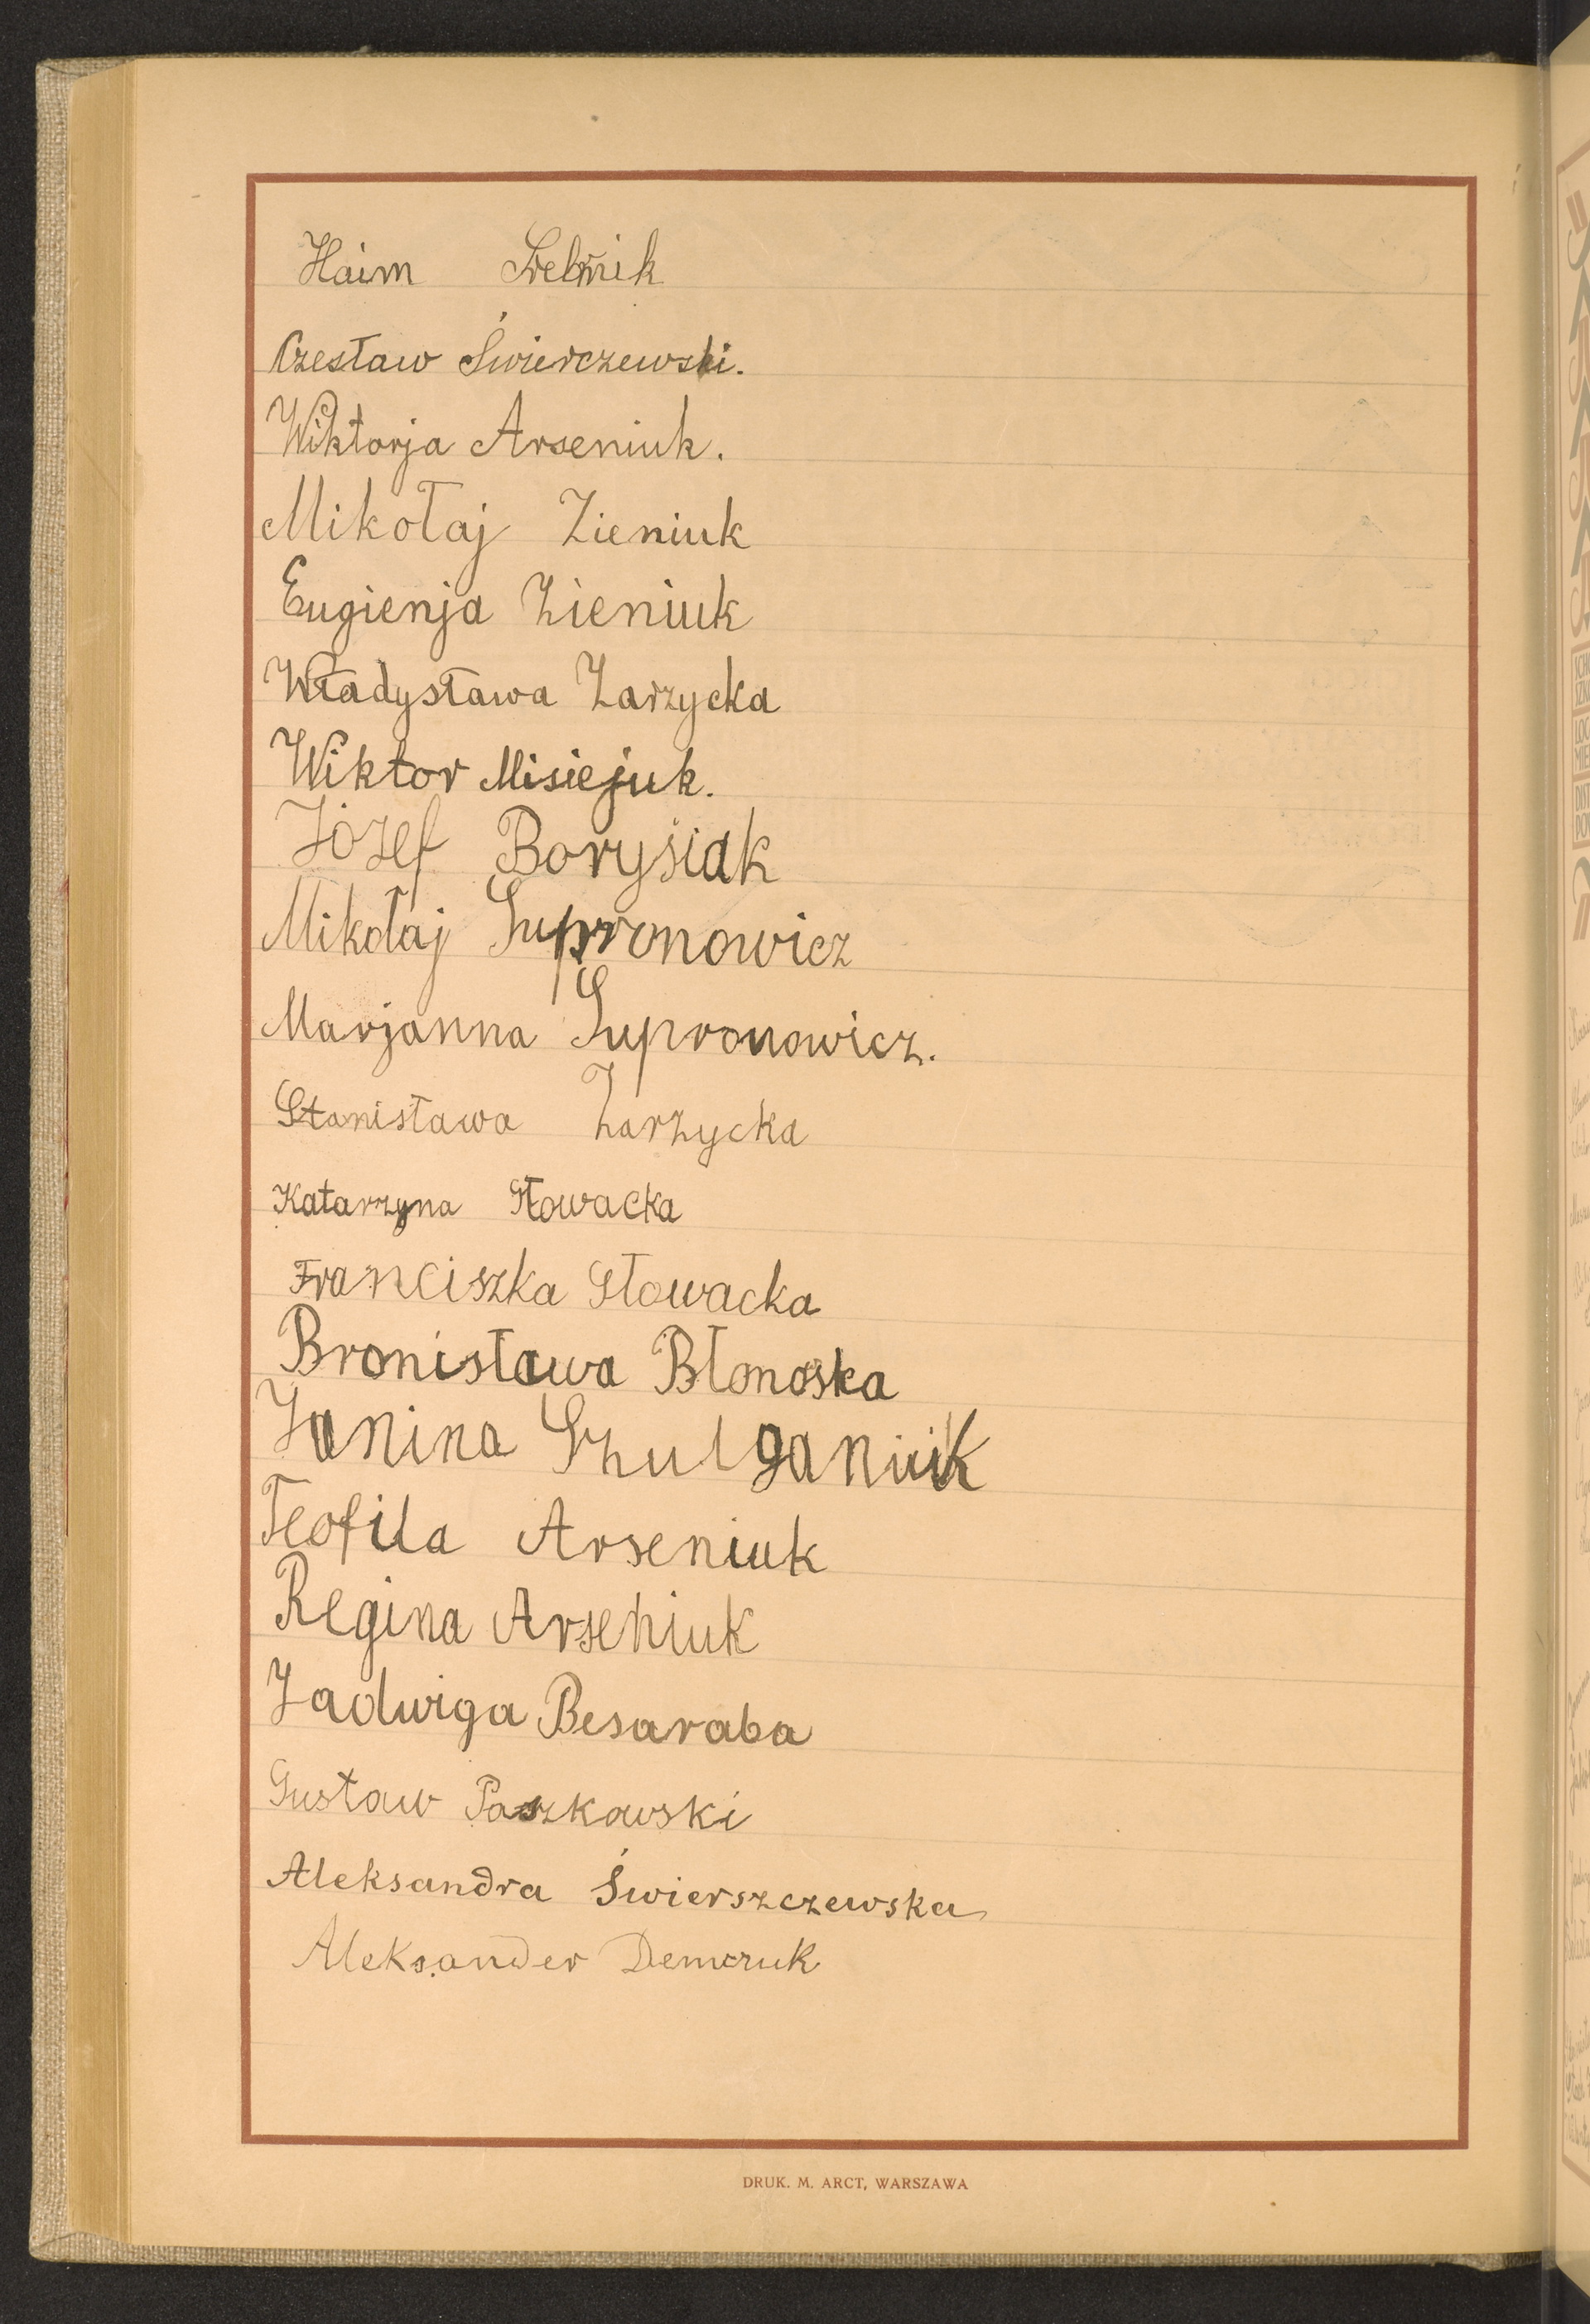 Haim Srebrnik
Czesław Świerczewski.
Wiktorja Arseniuk.
Mikołaj Zieniuk
Eugienja Zieniuk
Władysława Zarzycka
Wiktor Misiejuk.
Józef Borysiak
Mikołaj Supronowicz
Marjanna Supronowicz.
Stanisława Zarzycka
Katarzyna Głowacka
Franciszka Głowacka
Bronisława Błonoska
Janina Szulganiuk
Teofila Arseniuk
Regina Arseniuk
Jadwiga Besaraba
Gustaw Paszkowski
Aleksandra Świerszczewska
Aleksander Demczuk
DRUK. M. ARCT, WARSZAWA